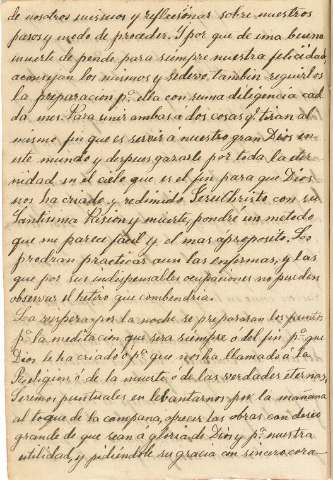 de nosotros mismos y reflecsónar sobre nuestros
pasos y modo de proceder. Y por que de una buena
muerte de pende para siempre nuestra felicidad
aconsejan los mismos y se deve tambien seguir los
la preparacion pª. ella con suma deligencia ca
da mes. Para unir ambas a dos cosas q! tiran al
mismo fin que es servir á nuestro gran Dios en
este mundo y despues gozarle por toda la eter
nidad en el cielo que es el fin para que Dios
nos ha criado y redimido Jesuchristo con su
Santisima Pasion y muerte, pondré un método
que me parece fácil y el mas ápropósito. Lo
prodran practicár aun las enfermas, y las
que por sus indispensables ocupaciones no pueden
observar el retiro que combendria.
La vispera por la noche se prepararan los puntos
pª. la meditacion que será siempre ó del fin pª. que
Dios le ha criado ó pª. que nos ha llamado á la
Religion ó de la muerte ó de las verdades eternas
Seremos puntuales en lebantarnos por la mañana
al toque de la campana, ofrecer las obras con deseo
grande de que sean á gloria de Dios y pª. nuestra
utilidad, y pidiéndole su gracia con sincero cora